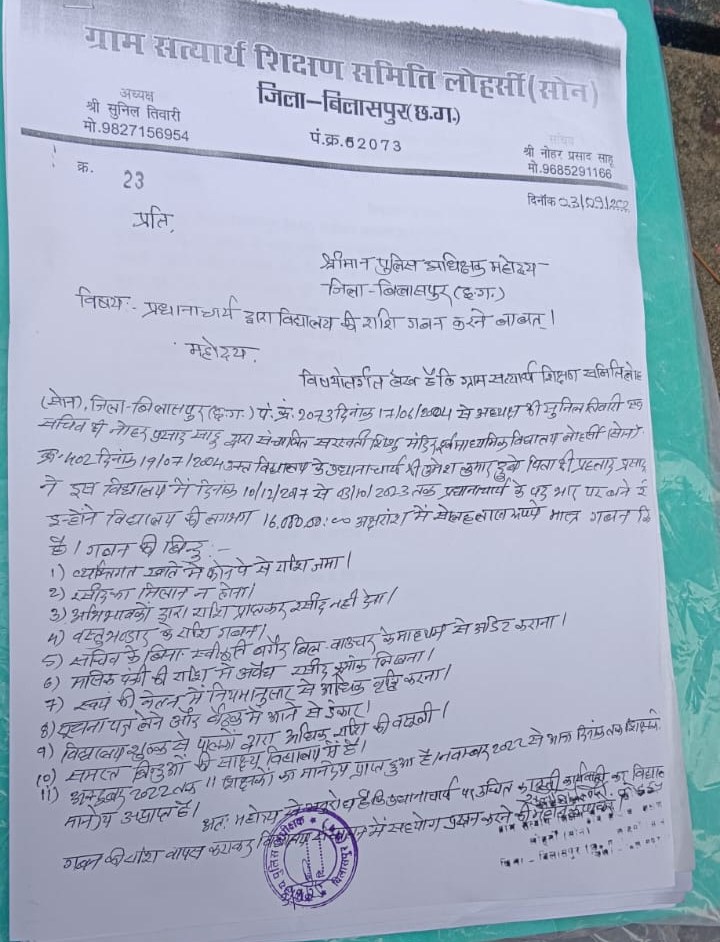 ग्राम सत्यार्थ शिक्षण समिति लोहर्सी(सोन)
जिला-बिलासपुर(छ.ग.)
अध्यक्ष
श्री सुनिल तिवारी
मो.9827156954
पं.क्र.62073
सचिव
श्री नोहर प्रसाद साहू
मो.9685291166
क्र. 23
दिनाँक 23/09/202
प्रति,
श्रीमान पुलिस अधिक्षक महोदय
जिला-बिलासपुर (छ.ग.)
विषय:- प्रधानाचार्य द्वारा विद्यालय की राशि गबन करने बाबत्।
महोदय,
विषयांतर्गत लेख है कि ग्राम सत्यार्थ शिक्षण समिति लोह
(सोन), जिला-बिलासपुर (छ.ग.) पं.क्र. 2073 दिनांक 17/06/2004 से अध्यक्ष श्री सुनिल तिवारी एवं
सचिव श्री नोहर प्रसाद साहू द्वारा संचालित सरस्वती शिशु मंदिर पूर्व माध्यमिक विद्यालय लोहर्सी (सोन)
क्र-402 दिनांक 19/07/2004 उक्त विद्यालय के प्रधानाचार्य श्री उमेश कुमार दुबे पिता श्री प्रहलाद प्रसाद
ने इस विद्यालय में दिनांक 10/12/2017 से 03/10/2023 तक प्रधानाचार्य के पद भार पर बने र
इन्होंने विद्यालय की लगभग 16,00,00:00 अक्षरांश में सोलह लाख रुपये मात्र गबन कि
है। गबन की बिन्दु :-
1) व्यक्तिगत खाते में फोनपे से राशि जमा।
2) रसीद का मिलान न होना।
3) अभिभावकों द्वारा राशि प्राप्तकर रसीद नही देना।
4) वस्तु भण्डार के राशि गबन।
5) सचिव के बिना स्वीकृति बगैर बिल-वाउचर के माध्यम से ऑडिट कराना।
6) मासिक पंजी की राशि में अवैध रसीद क्रमांक लिखना।
7) स्वयं की वेतन में नियमानुसार से अधिक वृद्धि करना।
8) सूचना पत्र लेने और बैठक में आने से इंकार।
9) विद्यालय शुल्क से पालकों द्वारा अधिक राशि की वसूली।
10) समस्त बिन्दुओं की साक्ष्य विद्यालय में है।
11) अक्टूबर 2022 तक 11 शिक्षकों का मानदेय प्राप्त हुआ है। नवम्बर 2022 से आज दिनांक तक शिक्षकों
मानदेय अप्राप्त है।
अतः महोदय से अनुरोध है कि प्रधानाचार्य पर उचित कानूनी कार्यवाही कर विद्याल
गबन की राशि वापस कराकर में सहयोग प्रदान करने की
पुलिस अधीक्षक
बिलासपुर
जिला - बिलासपुर